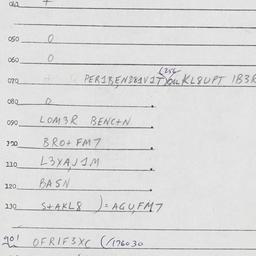 050 0
060 0
070 PER1BENDXAV1T
KL8UPT IB3R
080 0
090 LOM3R BENC+N
100 BRO+ FM7
110 L3XAJ1M
120 BASN
130 S+AKL8 )= AGU,FM7
901 OFRIF3XC (/176030